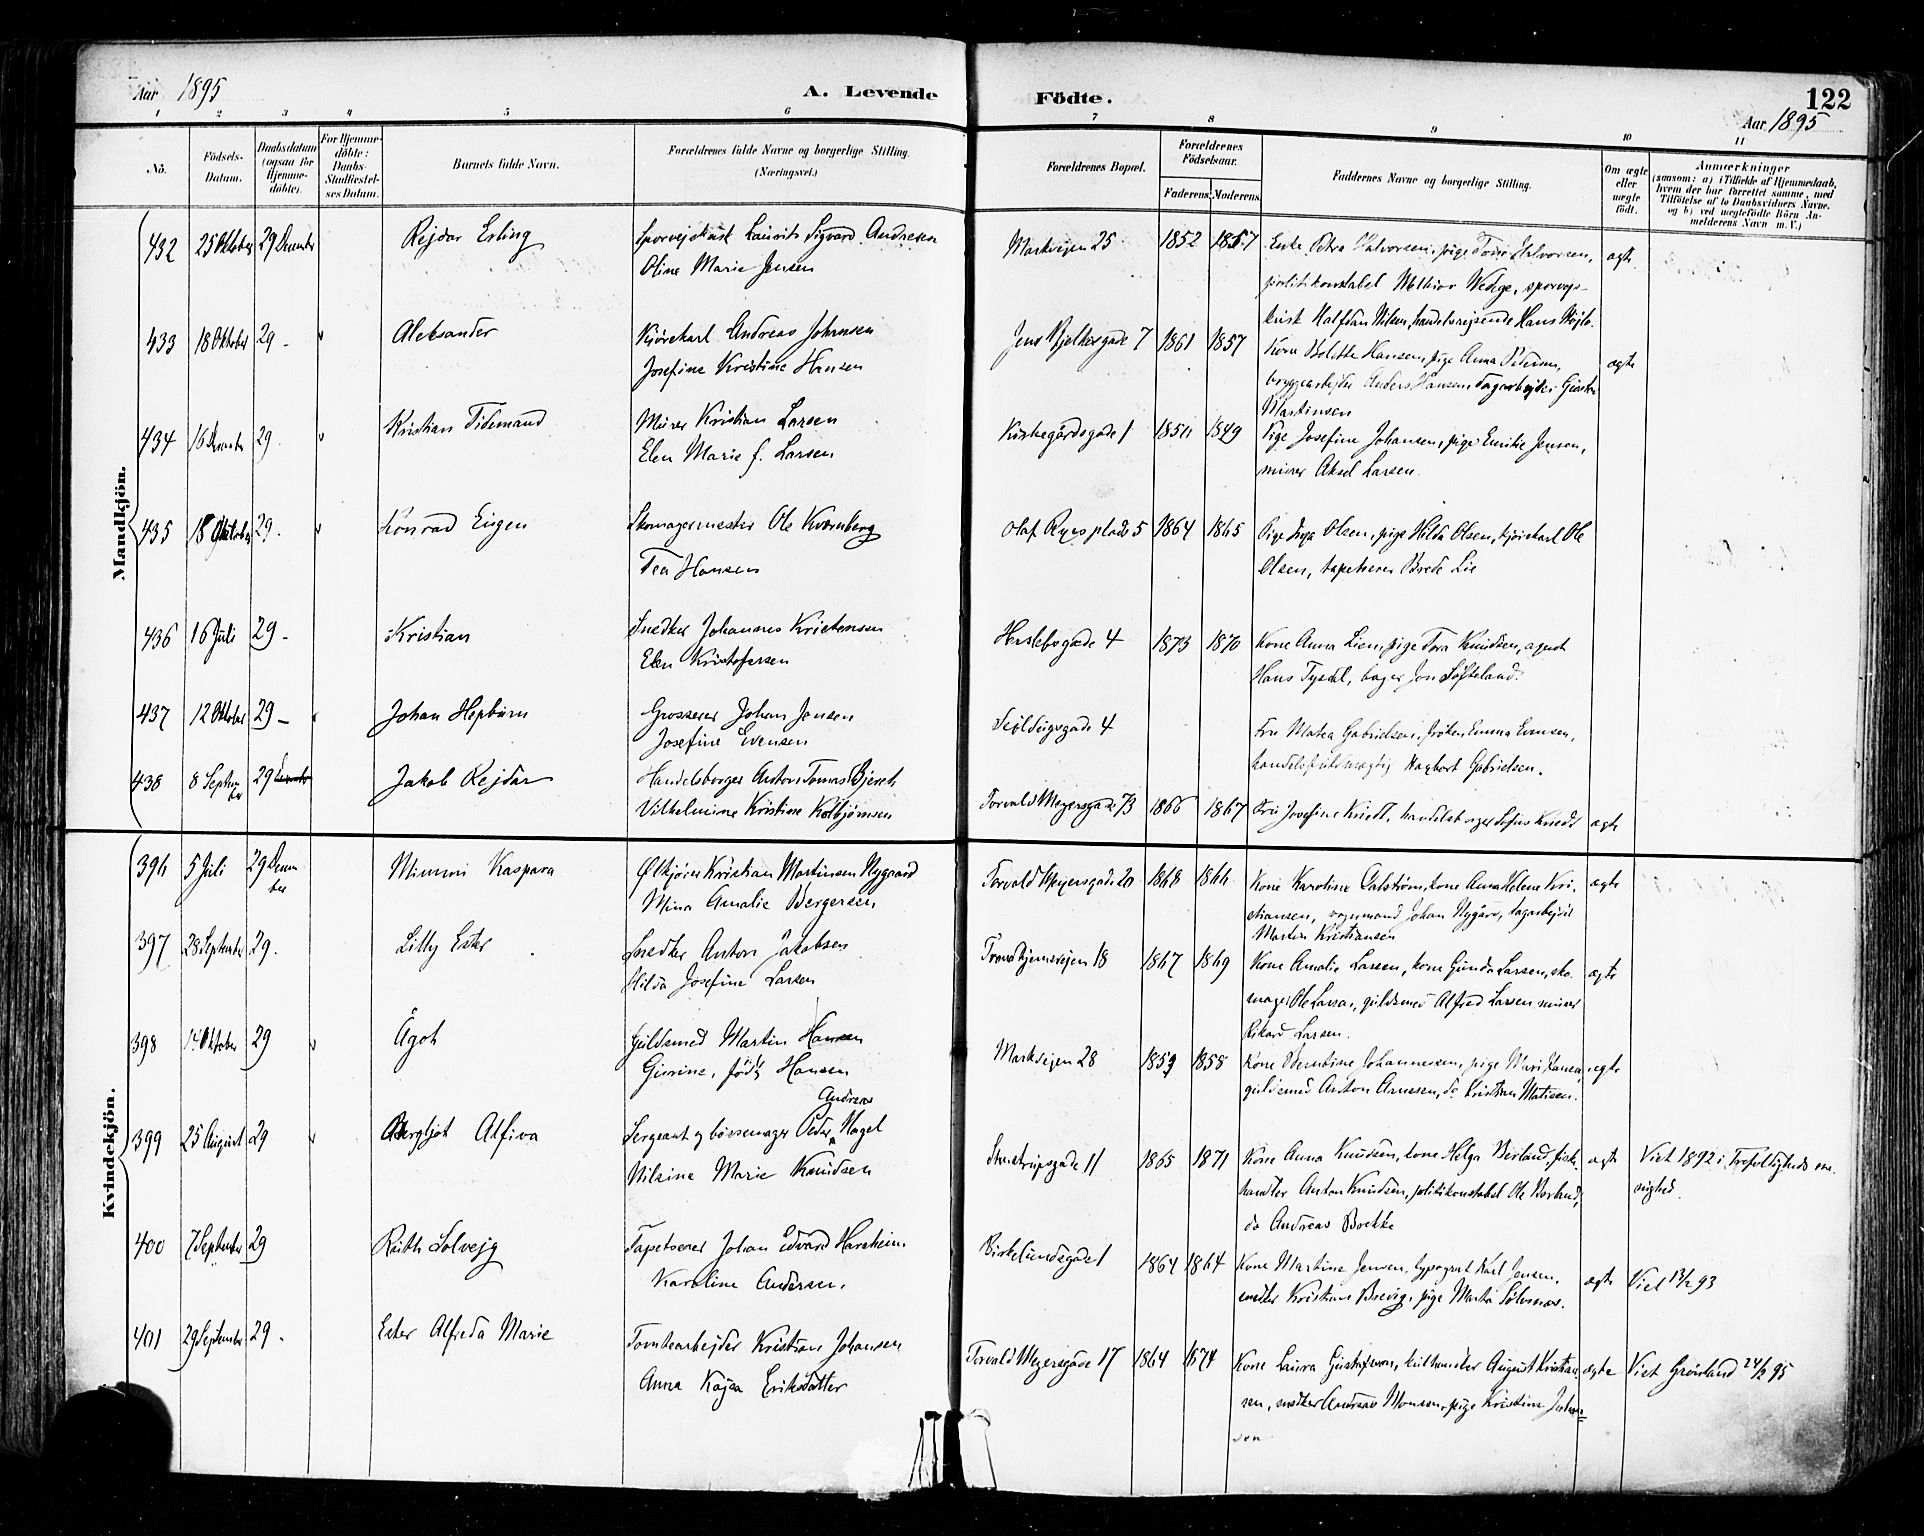 Aar 1895
A. Levende
Födte.
122
Aar 1895
1 2 3 4 5 6 7 8 9 10 11
No.
Födsels-
Datum.
Daabsdatum
(ogsaa for
Hjemme-
döbte).
For Hjemme-
döbte:
Daabs-
Stadfæstel-
ses Datum.
Barnets fulde Navn.
Forældrenes fulde Navne og borgerlige Stilling.
(Næringsvei.)
Forældrenes Bopæl.
Forældrenes
Födselsaar.
Faderens. Moderens.
Faddernes Navne og borgerlige Stilling.
Om ægte
eller
uægte
født.
Anmærkninger
(saasom: a) i Tilfælde af Hjemmedaab,
hvem der har forrettet samme, med
Tilföielse af to Daabsvidners Navne.
og b) ved uægtefödte Börn An-
melderens Navn m. V.)
Mandkjön.
432 25 Oktober 29 Desember Rejdar Erling Sporvejskusk Laurits Sigvard Andresen
Oline Marie Jensen
Markvejen 25 1852 1857 Enke Petra Halvorsen, pige Halvorsen, ægte
politikonstabel Wedege, sporvejs-
kusk Halfdan Nilsen, handelsrejsende Hans
433 18 Oktober 29 - Aleksander Kjørekarl Andreas Johansen
Josefine Kristine Hansen
Jens Bjelkesgade 7 1861 1857 Kone Bolette Hansen, pige Anna Pedersen, ægte
bryggearbejder Anders Hansen, dagarbejder
Martinsen
434 16 29. Kristian Tidemand Murer Kristian Larsen
Elen Marie f. Larsen
Kirkegårdsgade 1 1849 Pige Josefine Johansen, pige Emilie Jensen,
murer Aksel Larsen.
435 18 Oktober 29. Konrad Eugen Skomagermester Ole Kvernberg
Tea Hansen
Olaf Ryes plads 5 1864 1865 Pige Olsen, pige Hilda Olsen, kjørekarl Ole
Olsen, tapetserer Brede Lie
436 16 Juli 29 - Kristian Snedker Johannes Kristensen
Elen Kristofersen
Herslebsgade 4 1873 1870 Kone Anna Lien, pige Tora Knudsen, agent
Hans Tysdal, bager Jon Løfteland.
437 12 Oktober 29 - Johan Hepburn Grosserer Johan Jensen
Josefine Evensen
4 Fru Matea Gabrielsen, frøken Emma Evensen,
handelsfuldmægtig Gabrielsen.
438 8 September 29 Jakob Rejdar Handelsborger Anton Tomas Bjerch
Vilhelmine Kristine Kolbjørnsen
Torvald Meyersgade 73 1866 1867 Fru Josefine Kriedt, handelsborger Sofus Kriedt ægte
Kvindekjön.
396 5 Juli 29 Desem
ber Mimmi Kaspara Ølkjører Kristian Martinsen Nygaard
Mina Amalie Bergersen.
Torvald Meyersgade 20 1868 1866 Kone Karoline Dalstrøm, kone Anna Helene Kri- ægte
stiansen, vognmand Johan Nygård, dagarbejder
Martin Kristiansen
397 28 September 29. Lilly Ester Snedker Anton Jakobsen
Hilda Josefine Larsen
Trondhjemsvejen 18 1867 1869 Kone Amalie Larsen, kone Gunda Larsen, sko- ægte
mager Ole Larsen, guldsmed Alfred Larsen murer
Rikard Larsen.
398 14 Oktober 29 Ågot Guldsmed Martin Hansen
Gurine, født Hansen
Markvejen 28 1859 1858 Kone Berntine Johannesen, pige Mari Hansen, ægte
guldsmed Anton Arnesen, do Kristian Matisen.
399 25 August 29 Bergljot Alfiva Sergeant og bøssemager Peder Andreas Nagel
Nilsine Marie Knudsen
Stenstrupsgade 11 1865 1871 Kone Anna Knudsen, kone Helga Berland, fiske- ægte Viet 1892 i Trefoldigheds me-
nighed.
handler Anton Knudsen, politikonstabel Ole Berland,
do Andreas Brekke
400 7 September 29 Ruth Solvejg Tapetserer Johan Edvard Harsheim.
Karoline Andersen.
Birkelundsgade 1 1864 1864 Kone Martine Jensen, typograf Karl Jensen, ægte Viet 13/2 93
snedker Kristian Brevig, pige Marta Sølvsnes.
401 29 September 29. Ester Alfreda Marie Tomtearbejder Kristian Johansen
Anna Kajsa Eriksdatter
Torvald Meyersgade 17 1864 1874 Kone Laura Gustafsson, kulhandler August Kristian- ægte Viet Grønland 24/2 95
sen, snedker Andreas Monsen, pige Kristine Johan-
sen